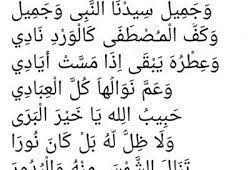 وَجَمِيل سِيدْنَا النَّبِى وَجَمِيل
وَكَفُّ الْمُصْطَفَى كَالْوَرْدِ نَادِي
وَعِطْرُهُ يَبْقَى إِذَا مَسَّتْ أَيَادِي
وَعَمَّ نَوَالُهَا كُلَّ الْعِبَادِي
حَبِيبُ اللهِ يَا خَيْرَ الْبَرَى
وَلَا ظِلَّ لَهُ بَلْ كَانَ نُورَا
تَنَالُ الشَّمْسُ مِنْهُ وَالْبُدُورَ